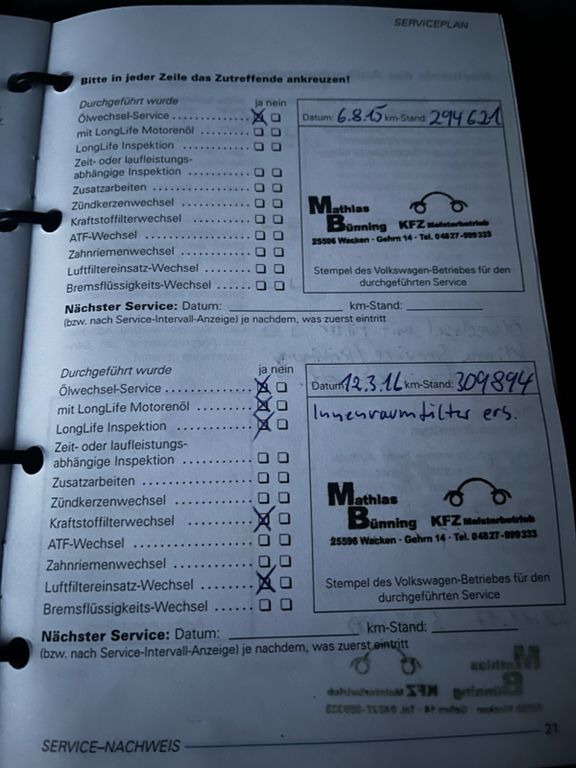 SERVICEPLAN
Bitte in jeder Zeile das Zutreffende ankreuzen!
Durchgeführt wurde ja nein
Ölwechsel-Service
mit LongLife Motorenöl
LongLife Inspektion
Zeit- oder laufleistungs-
abhängige Inspektion
Zusatzarbeiten
Zündkerzenwechsel
Kraftstoffilterwechsel
ATF-Wechsel
Zahnriemenwechsel
Luftfiltereinsatz-Wechsel
Bremsflüssigkeits-Wechsel
Datum: 6.8.15 km-Stand: 294621
Mathias
Bünning KFZ Meisterbetrieb
25596 Wacken · Gehrn 14 · Tel. 04827-999333
Stempel des Volkswagen-Betriebes für den
durchgeführten Service
Nächster Service: Datum: km-Stand:
(bzw. nach Service-Intervall-Anzeige) je nachdem, was zuerst eintritt
Durchgeführt wurde ja nein
Ölwechsel-Service
mit LongLife Motorenöl
LongLife Inspektion
Zeit- oder laufleistungs-
abhängige Inspektion
Zusatzarbeiten
Zündkerzenwechsel
Kraftstoffilterwechsel
ATF-Wechsel
Zahnriemenwechsel
Luftfiltereinsatz-Wechsel
Bremsflüssigkeits-Wechsel
Datum: 12.3.16 km-Stand: 309894
Innenraumfilter ers.
Mathias
Bünning KFZ Meisterbetrieb
25596 Wacken · Gehrn 14 · Tel. 04827-999333
Stempel des Volkswagen-Betriebes für den
durchgeführten Service
Nächster Service: Datum: km-Stand:
(bzw. nach Service-Intervall-Anzeige) je nachdem, was zuerst eintritt
SERVICE–NACHWEIS 21